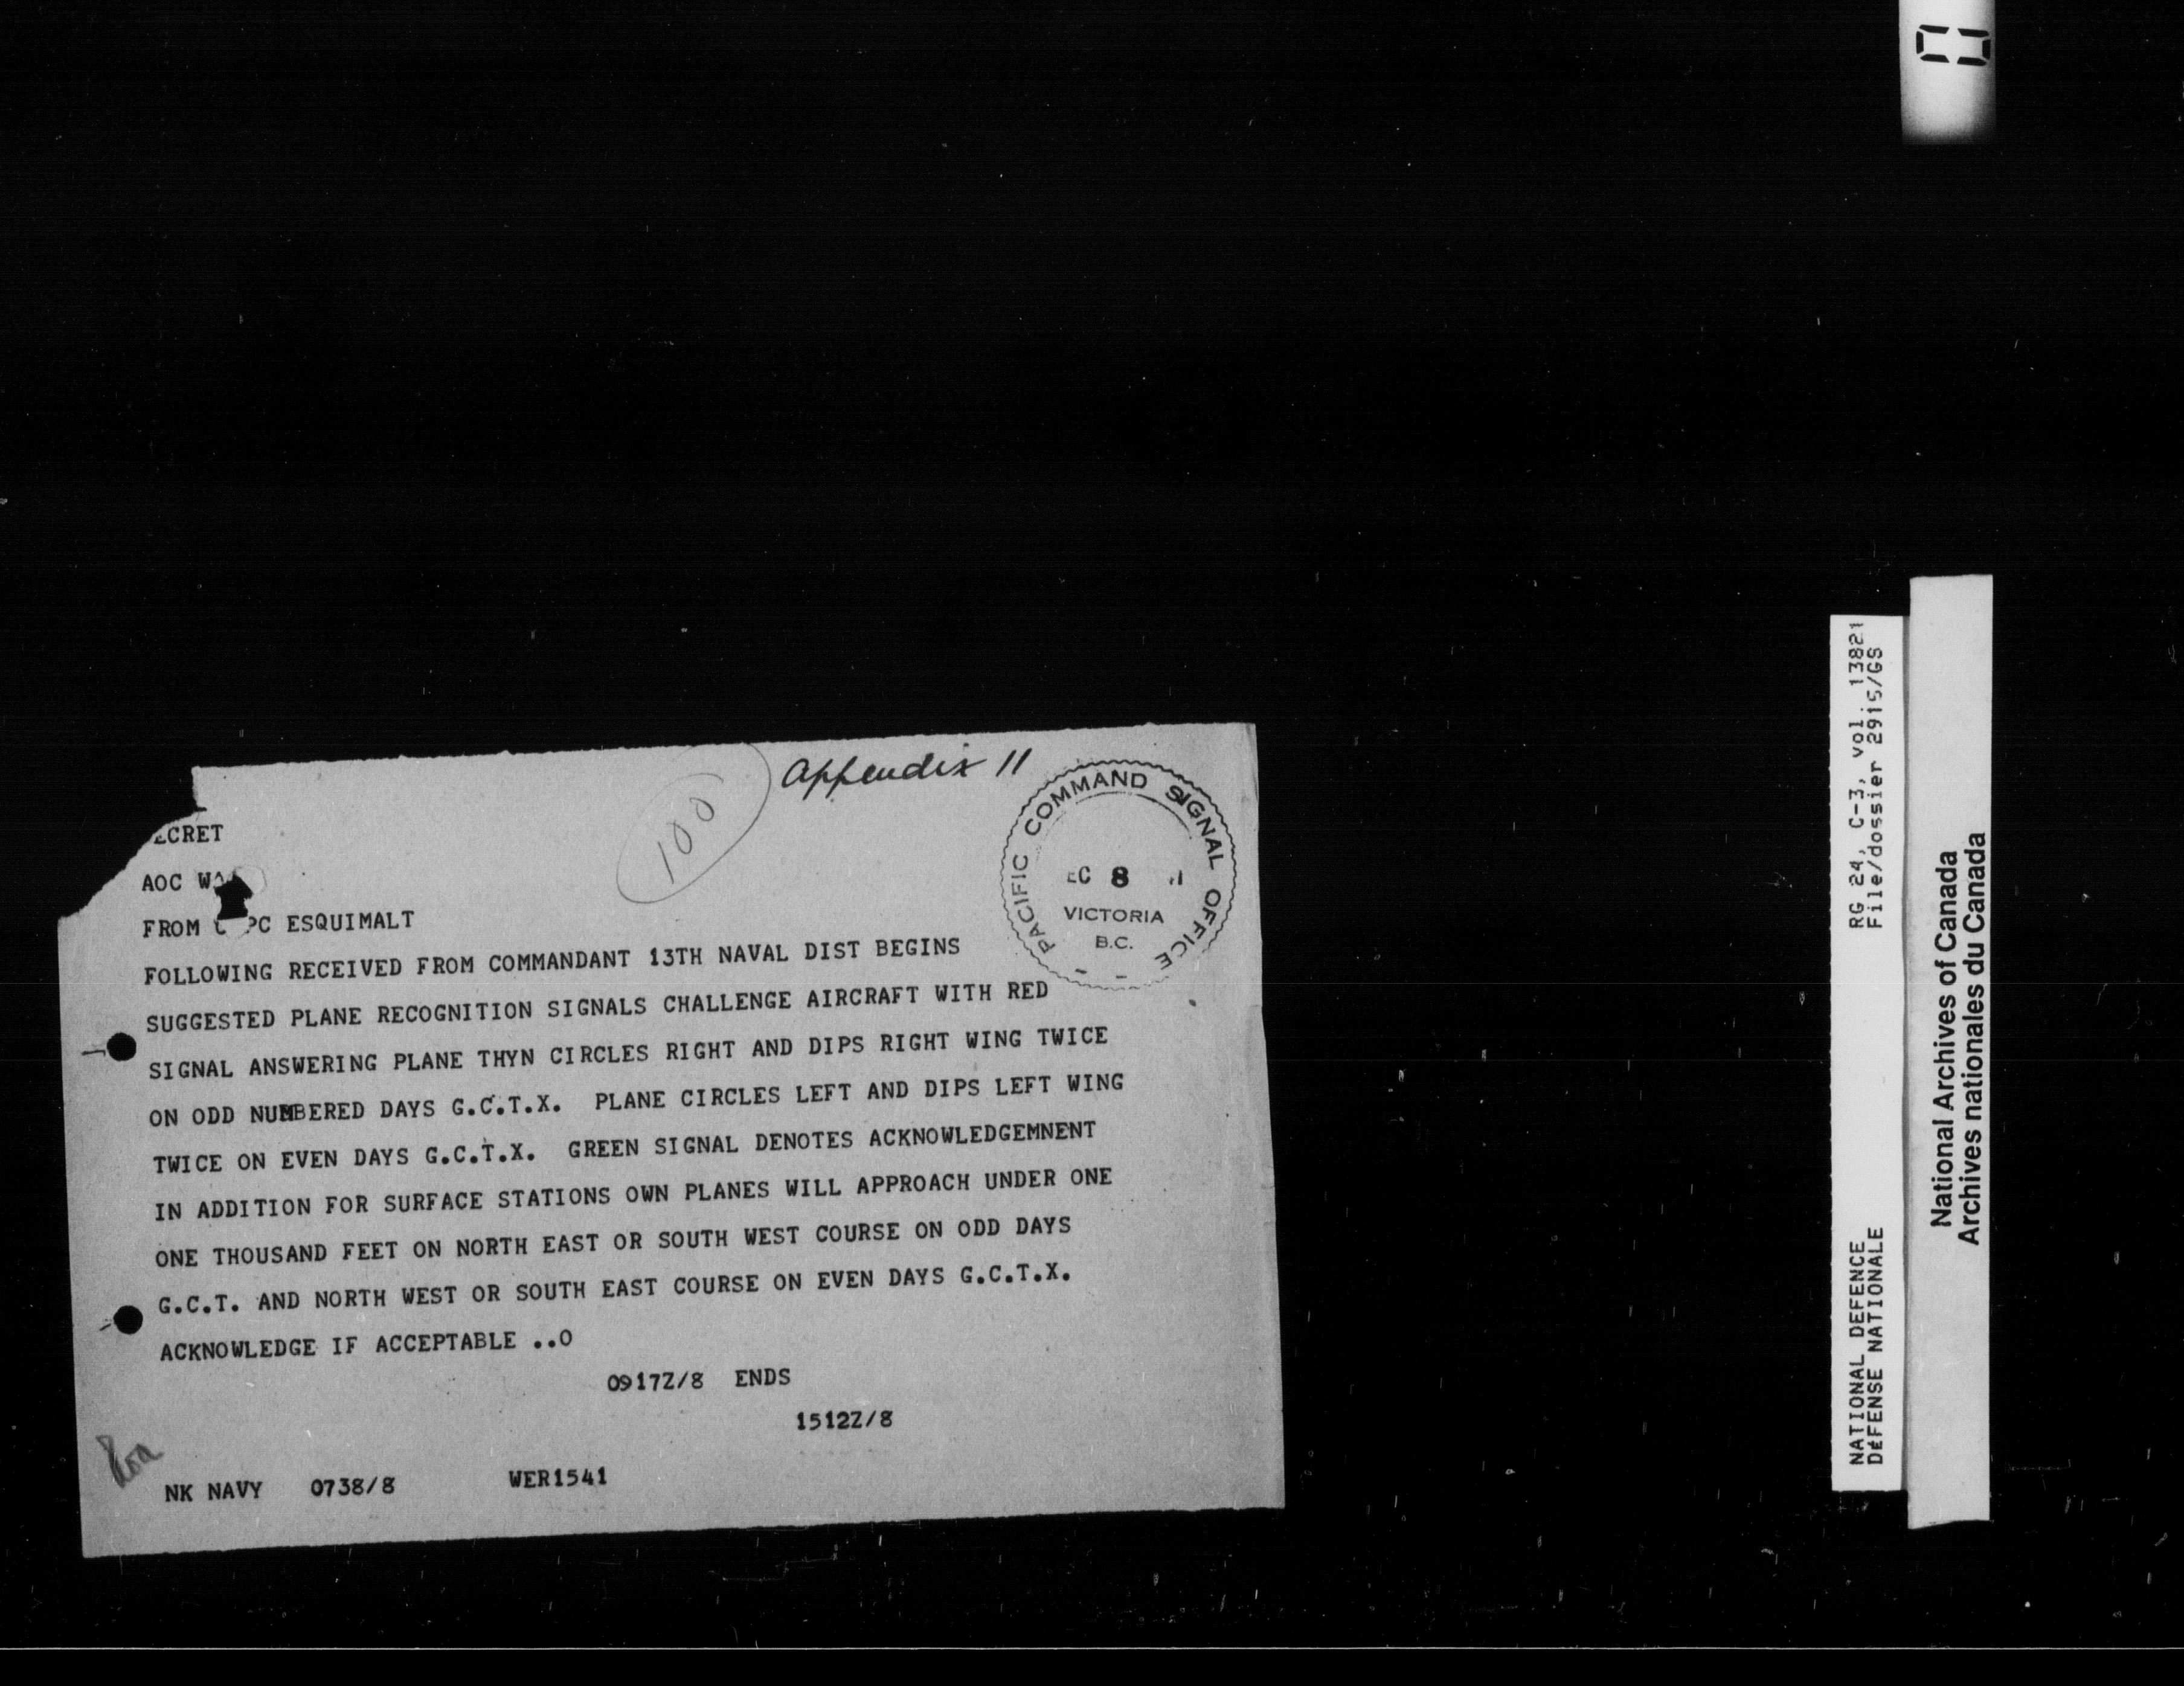 Appendix 11
100
PACIFIC COMMAND SIGNAL OFFICE
EC 8
VICTORIA
B.C.
ECRET
AOC
FROM PC ESQUIMALT
FOLLOWING RECEIVED FROM COMMANDANT 13TH NAVAL DIST BEGINS
SUGGESTED PLANE RECOGNITION SIGNALS CHALLENGE AIRCRAFT WITH RED
SIGNAL ANSWERING PLANE THYN CIRCLES RIGHT AND DIPS RIGHT WING TWICE
ON ODD NUMBERED DAYS G.C.T.X. PLANE CIRCLES LEFT AND DIPS LEFT WING
TWICE ON EVEN DAYS G.C.T.X. GREEN SIGNAL DENOTES ACKNOWLEDGEMNENT
IN ADDITION FOR SURFACE STATIONS OWN PLANES WILL APPROACH UNDER ONE
ONE THOUSAND FEET ON NORTH EAST OR SOUTH WEST COURSE ON ODD DAYS
G.C.T. AND NORTH WEST OR SOUTH EAST COURSE ON EVEN DAYS G.C.T.X.
ACKNOWLEDGE IF ACCEPTABLE ..O
0917Z/8 ENDS
1512Z/8
NK NAVY 0738/8 WER1541
NATIONAL DEFENCE RG 24, C-3, vol. 13821
DéFENSE NATIONALE File/dossier 2915/GS
National Archives of Canada
Archives nationales du Canada